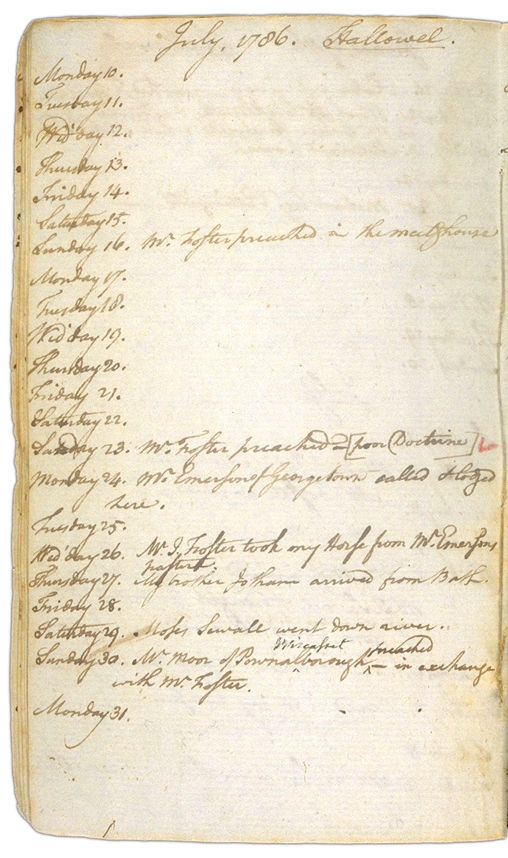 July, 1786. Hallowel.
Monday 10.
Tuesday 11.
Wed'day 12.
Thursday 13.
Friday 14.
Saturday 15.
Sunday 16. Mr. Foster preached in the meetghouse
Monday 17.
Tuesday 18.
Wed'day 19.
Thursday 20.
Friday 21.
Saturday 22.
Sunday 23. Mr. Foster preached [poor Doctrine]
Monday 24. Mr. Emerson of Georgetown called & lodged
here.
Tuesday 25.
Wed'day 26. Mr. J. Foster took my Horse from Mr. Emersons
pasture.
Thursday 27. My brother Jotham arrived from Bath.
Friday 28.
Saturday 29. Moses Sewall went down river.
Wiscasset preached
Sunday 30. Mr. Moor of Pownalborough ^ ^ in exchange
with Mr. Foster.
Monday 31.